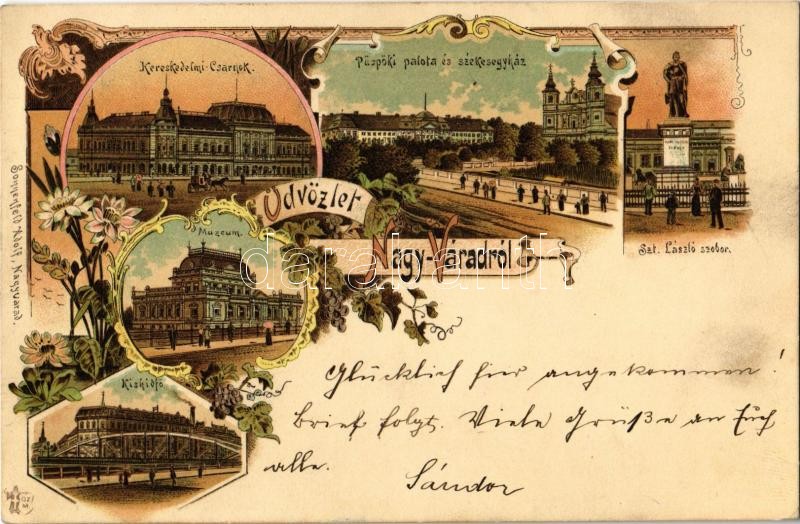 Kereskedelmi-Csarnok.
Püspöki palota és székesegyház
Szt. László szobor.
Üdvözlet
Nagy-Váradról
Muzeum.
Kishidfő
Sonnenfeld Adolf, Nagyvárad.
Glücklich hier angekommen!
Brief folgt. Viele Grüße an Euch
alle. Sándor
darabanth